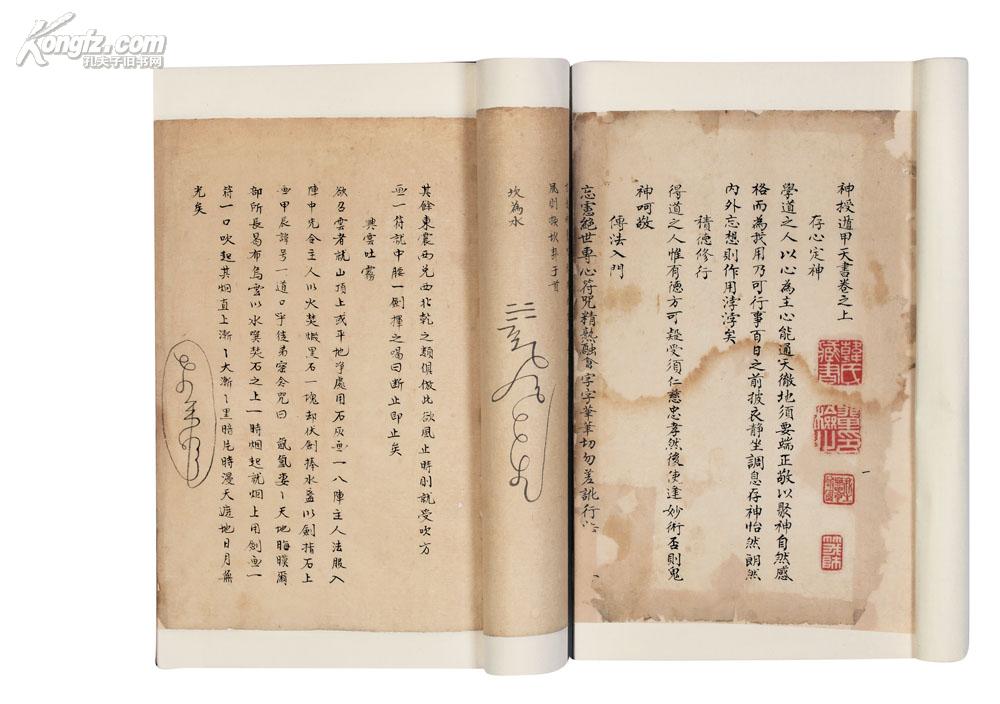 Kongfz.com
孔夫子旧书网
神授遁甲天書卷之上
存心定神
學道之人以心為主心能通天徹地須要端正敬以聚神自然感
格而為我用乃可行事百日之前披衣静坐調息存神怡然朗然
内外忘想則作用浡浡矣
積德修行
得道之人惟有德方可疑受須仁慈忠孝然後使逢妙術否則鬼
神呵敬
傳法入門
忘憲絕世專心符咒精熟融會字字筆筆切勿差訛行
坎為水
其餘東震西兑西北乾之類俱倣此欲風止時則就受吹方
画一符就中腰一劍揮之喝曰斷止即止矣
興雲吐霧
欲召雲者就山頂上或平地净處用石灰画一八陣主人法服入
陣中先令主人以火焚煅黑石一塊却伏劍捧水盏以劍指石上
画甲辰諱号一道口乎徒弟密念咒曰氤氲婁〻天地晦瞨爾
部所長曷布烏雲以水噀焚石之上一時烟起就烟上用劍画一
符一口吹起其烟直上漸〻大漸〻黑暗片時漫天遮地日月無
光矣
韓氏
藏書